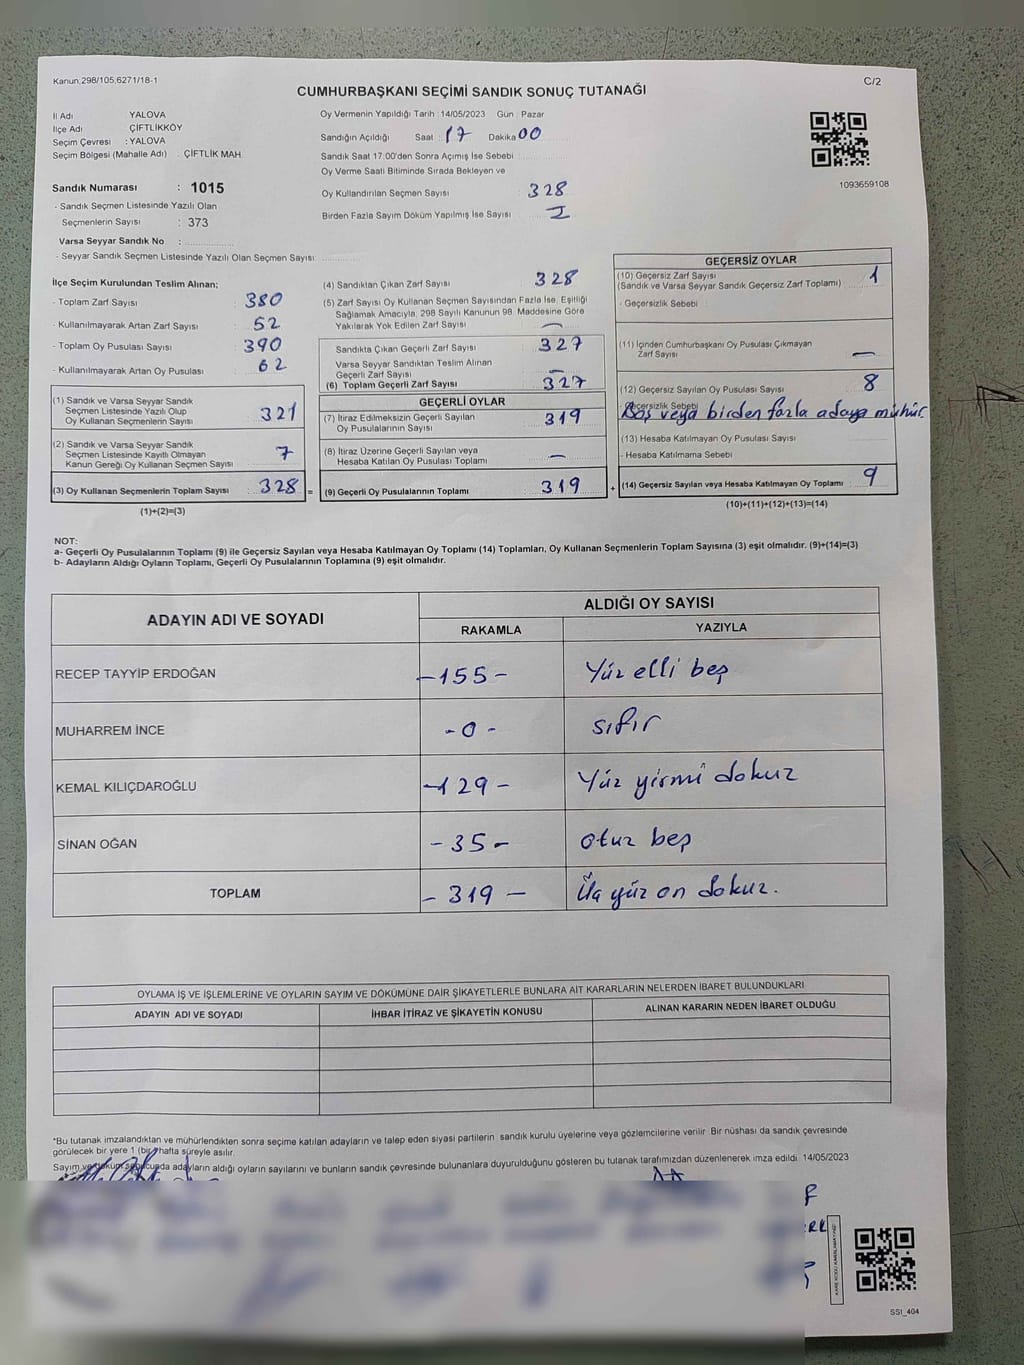 Kanun,298/105,6271/18-1
C/2
CUMHURBAŞKANI SEÇİMİ SANDIK SONUÇ TUTANAĞI
İl Adı YALOVA
İlçe Adı ÇİFTLİKKÖY
Seçim Çevresi : YALOVA
Seçim Bölgesi (Mahalle Adı) : ÇİFTLİK MAH.
Sandık Numarası : 1015
- Sandık Seçmen Listesinde Yazılı Olan
Seçmenlerin Sayısı : 373
Varsa Seyyar Sandık No :
- Seyyar Sandık Seçmen Listesinde Yazılı Olan Seçmen Sayısı:
Oy Vermenin Yapıldığı Tarih : 14/05/2023 Gün : Pazar
Sandığın Açıldığı Saat : 17 Dakika 00
Sandık Saat 17:00'den Sonra Açımış İse Sebebi
Oy Verme Saati Bitiminde Sırada Bekleyen ve
Oy Kullandırılan Seçmen Sayısı 328
Birden Fazla Sayım Döküm Yapılmış İse Sayısı : I
1093659108
İlçe Seçim Kurulundan Teslim Alınan;
- Toplam Zarf Sayısı : 380
- Kullanılmayarak Artan Zarf Sayısı : 52
- Toplam Oy Pusulası Sayısı : 390
- Kullanılmayarak Artan Oy Pusulası : 62
(1) Sandık ve Varsa Seyyar Sandık
Seçmen Listesinde Yazılı Olup
Oy Kullanan Seçmenlerin Sayısı : 321
(2) Sandık ve Varsa Seyyar Sandık
Seçmen Listesinde Kayıtlı Olmayan
Kanun Gereği Oy Kullanan Seçmen Sayısı : 7
(3) Oy Kullanan Seçmenlerin Toplam Sayısı : 328 =
(1)+(2)=(3)
(4) Sandıktan Çıkan Zarf Sayısı : 328
(5) Zarf Sayısı Oy Kullanan Seçmen Sayısından Fazla İse, Eşitliği
Sağlamak Amacıyla, 298 Sayılı Kanunun 98. Maddesine Göre
Yakılarak Yok Edilen Zarf Sayısı : —
Sandıkta Çıkan Geçerli Zarf Sayısı : 327
Varsa Seyyar Sandıktan Teslim Alınan
Geçerli Zarf Sayısı : —
(6) Toplam Geçerli Zarf Sayısı : 327
GEÇERLİ OYLAR
(7) İtiraz Edilmeksizin Geçerli Sayılan
Oy Pusulalarının Sayısı : 319
(8) İtiraz Üzerine Geçerli Sayılan veya
Hesaba Katılan Oy Pusulası Toplamı : —
(9) Geçerli Oy Pusulalarının Toplamı : 319 +
GEÇERSİZ OYLAR
(10) Geçersiz Zarf Sayısı 1
(Sandık ve Varsa Seyyar Sandık Geçersiz Zarf Toplamı)
- Geçersizlik Sebebi :
(11) İçinden Cumhurbaşkanı Oy Pusulası Çıkmayan
Zarf Sayısı : —
(12) Geçersiz Sayılan Oy Pusulası Sayısı : 8
- Geçersizlik Sebebi
Boş veya birden fazla adaya mühür.
(13) Hesaba Katılmayan Oy Pusulası Sayısı
- Hesaba Katılmama Sebebi
(14) Geçersiz Sayılan veya Hesaba Katılmayan Oy Toplamı : 9
(10)+(11)+(12)+(13)=(14)
NOT:
a- Geçerli Oy Pusulalarının Toplamı (9) ile Geçersiz Sayılan veya Hesaba Katılmayan Oy Toplamı (14) Toplamları, Oy Kullanan Seçmenlerin Toplam Sayısına (3) eşit olmalıdır. (9)+(14)=(3)
b- Adayların Aldığı Oyların Toplamı, Geçerli Oy Pusulalarının Toplamına (9) eşit olmalıdır.
ADAYIN ADI VE SOYADI
ALDIĞI OY SAYISI
RAKAMLA YAZIYLA
RECEP TAYYİP ERDOĞAN -155- Yüz elli beş
MUHARREM İNCE -0- sıfır
KEMAL KILIÇDAROĞLU -129- Yüz yirmi dokuz
SİNAN OĞAN -35- otuz beş
TOPLAM -319- Üç yüz on dokuz.
OYLAMA İŞ VE İŞLEMLERİNE VE OYLARIN SAYIM VE DÖKÜMÜNE DAİR ŞİKAYETLERLE BUNLARA AİT KARARLARIN NELERDEN İBARET BULUNDUKLARI
ADAYIN ADI VE SOYADI İHBAR İTİRAZ VE ŞİKAYETİN KONUSU ALINAN KARARIN NEDEN İBARET OLDUĞU
*Bu tutanak imzalandıktan ve mühürlendikten sonra seçime katılan adayların ve talep eden siyasi partilerin sandık kurulu üyelerine veya gözlemcilerine verilir. Bir nüshası da sandık çevresinde
görülecek bir yere 1 (bir) hafta süreyle asılır.
Sayım ve döküm sonucunda adayların aldığı oyların sayılarını ve bunların sandık çevresinde bulunanlara duyurulduğunu gösteren bu tutanak tarafımızdan düzenlenerek imza edildi. 14/05/2023
SSI_404